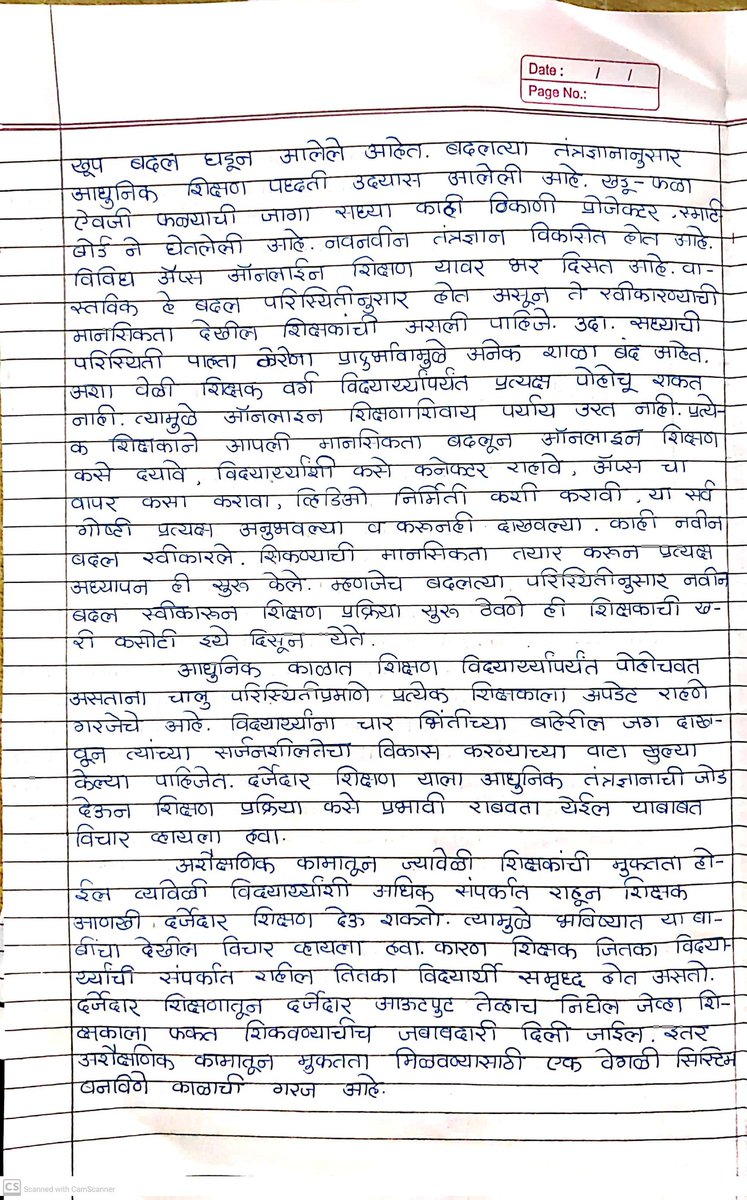 Date : / /
Page No.:
खूप बदल घडून आलेले आहेत. बदलत्या तंत्रज्ञानानुसार
आधुनिक शिक्षण पध्दती उदयास आलेली आहे. खडू-फळा
ऐवजी फळ्याची जागा सध्या काही ठिकाणी प्रोजेक्टर, स्मार्ट
बोर्ड ने घेतलेली आहे. नवनवीन तंत्रज्ञान विकसित होत आहे.
विविध ॲप्स ऑनलाईन शिक्षण यावर भर दिसत आहे. वा-
स्तविक हे बदल परिस्थितीनुसार होत असून ते स्वीकारण्याची
मानसिकता देखील शिक्षकांची असली पाहिजे. उदा. सध्याची
परिस्थिती पाहता कोरोना प्रादुर्भावामुळे अनेक शाळा बंद आहेत.
अशा वेळी शिक्षक वर्ग विदयार्थ्यांपर्यंत प्रत्यक्ष पोहोचू शकत
नाही. त्यामुळे ऑनलाइन शिक्षणाशिवाय पर्याय उरत नाही. प्रत्ये-
क शिक्षकाने आपली मानसिकता बदलून ऑनलाइन शिक्षण
कसे दयावे, विदयार्थ्यांशी कसे कनेक्टर राहावे, ॲप्स चा
वापर कसा करावा, व्हिडिओ निर्मिती कशी करावी, या सर्व
गोष्टी प्रत्यक्ष अनुभवल्या व करूनही दाखवल्या. काही नवीन
बदल स्वीकारले. शिकण्याची मानसिकता तयार करून प्रत्यक्ष
अध्यापन ही सुरू केले. म्हणजेच बदलत्या परिस्थितीनुसार नवीन
बदल स्वीकारून शिक्षण प्रक्रिया सुरू ठेवणे ही शिक्षकाची ख-
री कसोटी इथे दिसून येते.
आधुनिक काळात शिक्षण विदयार्थ्यांपर्यंत पोहोचवत
असताना चालु परिस्थितीप्रमाणे प्रत्येक शिक्षकाला अपडेट राहणे
गरजेचे आहे. विदयार्थ्यांना चार भिंतीच्या बाहेरील जग दाख-
वून त्यांच्या सर्जनशीलतेचा विकास करण्याच्या वाटा खुल्या
केल्या पाहिजेत. दर्जेदार शिक्षण याला आधुनिक तंत्रज्ञानाची जोड
देऊन शिक्षण प्रक्रिया कसे प्रभावी राबवता येईल याबाबत
विचार व्हायला हवा.
अशैक्षणिक कामातून ज्यावेळी शिक्षकांची मुक्तता हो-
ईल त्यावेळी विदयार्थ्यांशी अधिक संपर्कात राहून शिक्षक
आणखी दर्जेदार शिक्षण देऊ शकतो. त्यामुळे भविष्यात या बा-
बींचा देखील विचार व्हायला हवा. कारण शिक्षक जितका विदया-
र्थ्यांची संपर्कात राहील तितका विदयार्थी समृध्द होत असतो.
दर्जेदार शिक्षणातून दर्जेदार आऊटपुट तेव्हाच निघेल जेव्हा शि-
क्षकाला फक्त शिकवण्याचीच जबाबदारी दिली जाईल. इतर
अशैक्षणिक कामातून मुक्तता मिळवण्यासाठी एक वेगळी सिस्टिम
बनविणे काळाची गरज आहे.
CS Scanned with CamScanner